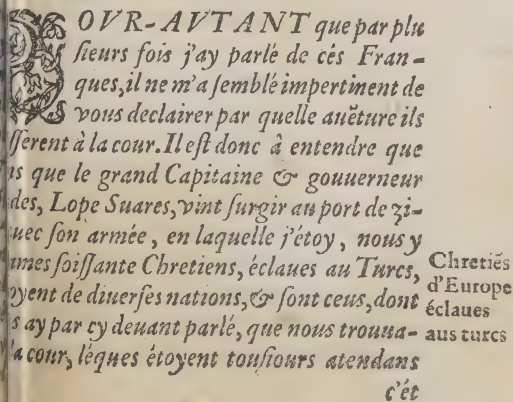 POVR-AVTANT que par plu
sieurs fois j'ay parlé de cés Fran-
ques, il ne m'a semblé impertinent de
vous declairer par quelle auẽture ils
sserent à la cour. Il est donc â entendre que
ns que le grand Capitaine & gouuerneur
des, Lope Suares, vint surgir au port de zi-
uec son armée, en laquelle j'étoy, nous y
umes soissante Chretiens, éclaues au Turcs,
oyent de diuerses nations, & sont ceus, dont
s ay par cy deuant parlé, que nous trouua-
la cour, léques étoyent tousiours atendans
c'ét
Chretiẽs
d'Europe
éclaues
aus turcs